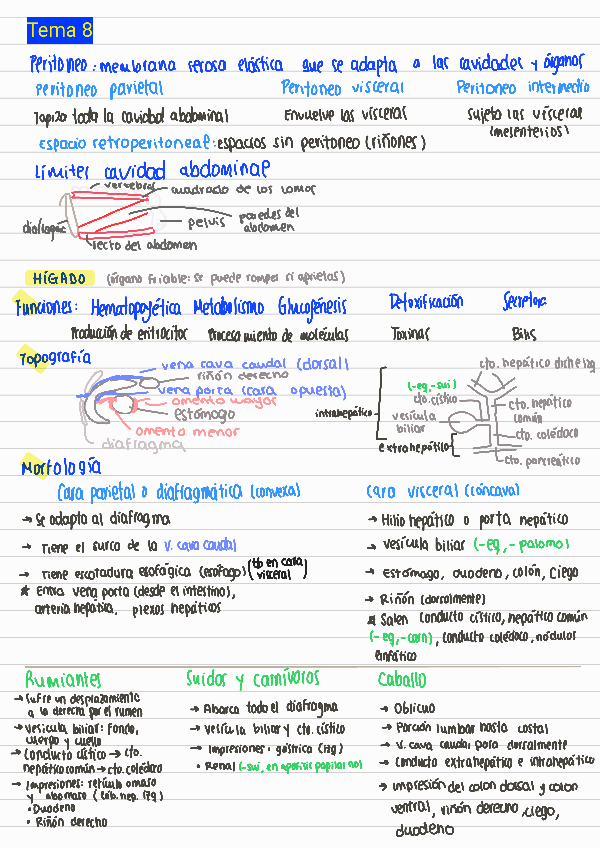 Tema 8
Peritoneo: membrana serosa elástica que se adapta a las cavidades y órganos
Peritoneo parietal
Peritoneo visceral
Peritoneo intermedio
Tapiza toda la cavidad abdominal
Envuelve las vísceras
Sujeta las vísceras
(mesenterios)
Espacio retroperitoneal: espacios sin peritoneo (riñones)
Límites cavidad abdominal
vertebras
cuadrado de los lomos
diafragma
pelvis
paredes del
abdomen
recto del abdomen
HÍGADO (órgano friable: se puede romper si aprietas)
Funciones: Hematopoyética Metabolismo Glucogénesis Detoxificación Secretora
Producción de eritrocitos
Procesamiento de moléculas
Toxinas
Bilis
Topografía
vena cava caudal (dorsal)
riñón derecho
vena porta (cara opuesta)
omento mayor
estómago
omento menor
diafragma
cto. hepático dich e izq
(-eq,-sui)
cto.cístico
intrahepático
vesícula
biliar
cto. hepático
común
cto. colédoco
extrahepático
cto. pancreático
Morfología
Cara parietal o diafragmática (convexa)
→ Se adapta al diafragma
→ Tiene el surco de la v. cava caudal
→ Tiene escotadura esofágica (esófago) (tb en cara
visceral)
* Entra vena porta (desde el intestino),
arteria hepática, plexos hepáticos
cara visceral (cóncava)
→ Hilio hepático o porta hepático
→ vesícula biliar (-eq,- paloma)
→ Estómago, duodeno, colón, ciego
→ Riñón (dorsalmente)
* Salen conducto cístico, hepático común
(-eq,-carn), conducto colédoco, nódulos
linfático
Rumiantes
→ Sufre un desplazamiento
a la derecha por el rumen
→ Vesícula biliar: fondo,
cuerpo y cuello
→ Conducto cístico → cto.
hepático común → cto. colédoco
→ Impresiones: retículo omaso
y abomaso (lób. hep. izq)
• Duodeno
• Riñón derecho
Suidos y carnívoros
→ Abarca todo el diafragma
→ Vesícula biliar y cto. cístico
→ Impresiones: gástrica (izq)
• Renal (-sui, en apófisis papilar no)
Caballo
→ Oblicuo
→ Porción lumbar hasta costal
→ v. cava caudal pasa dorsalmente
→ Conducto extrahepático e intrahepático
→ impresión del colon dorsal y colon
ventral, riñón derecho, ciego,
duodeno